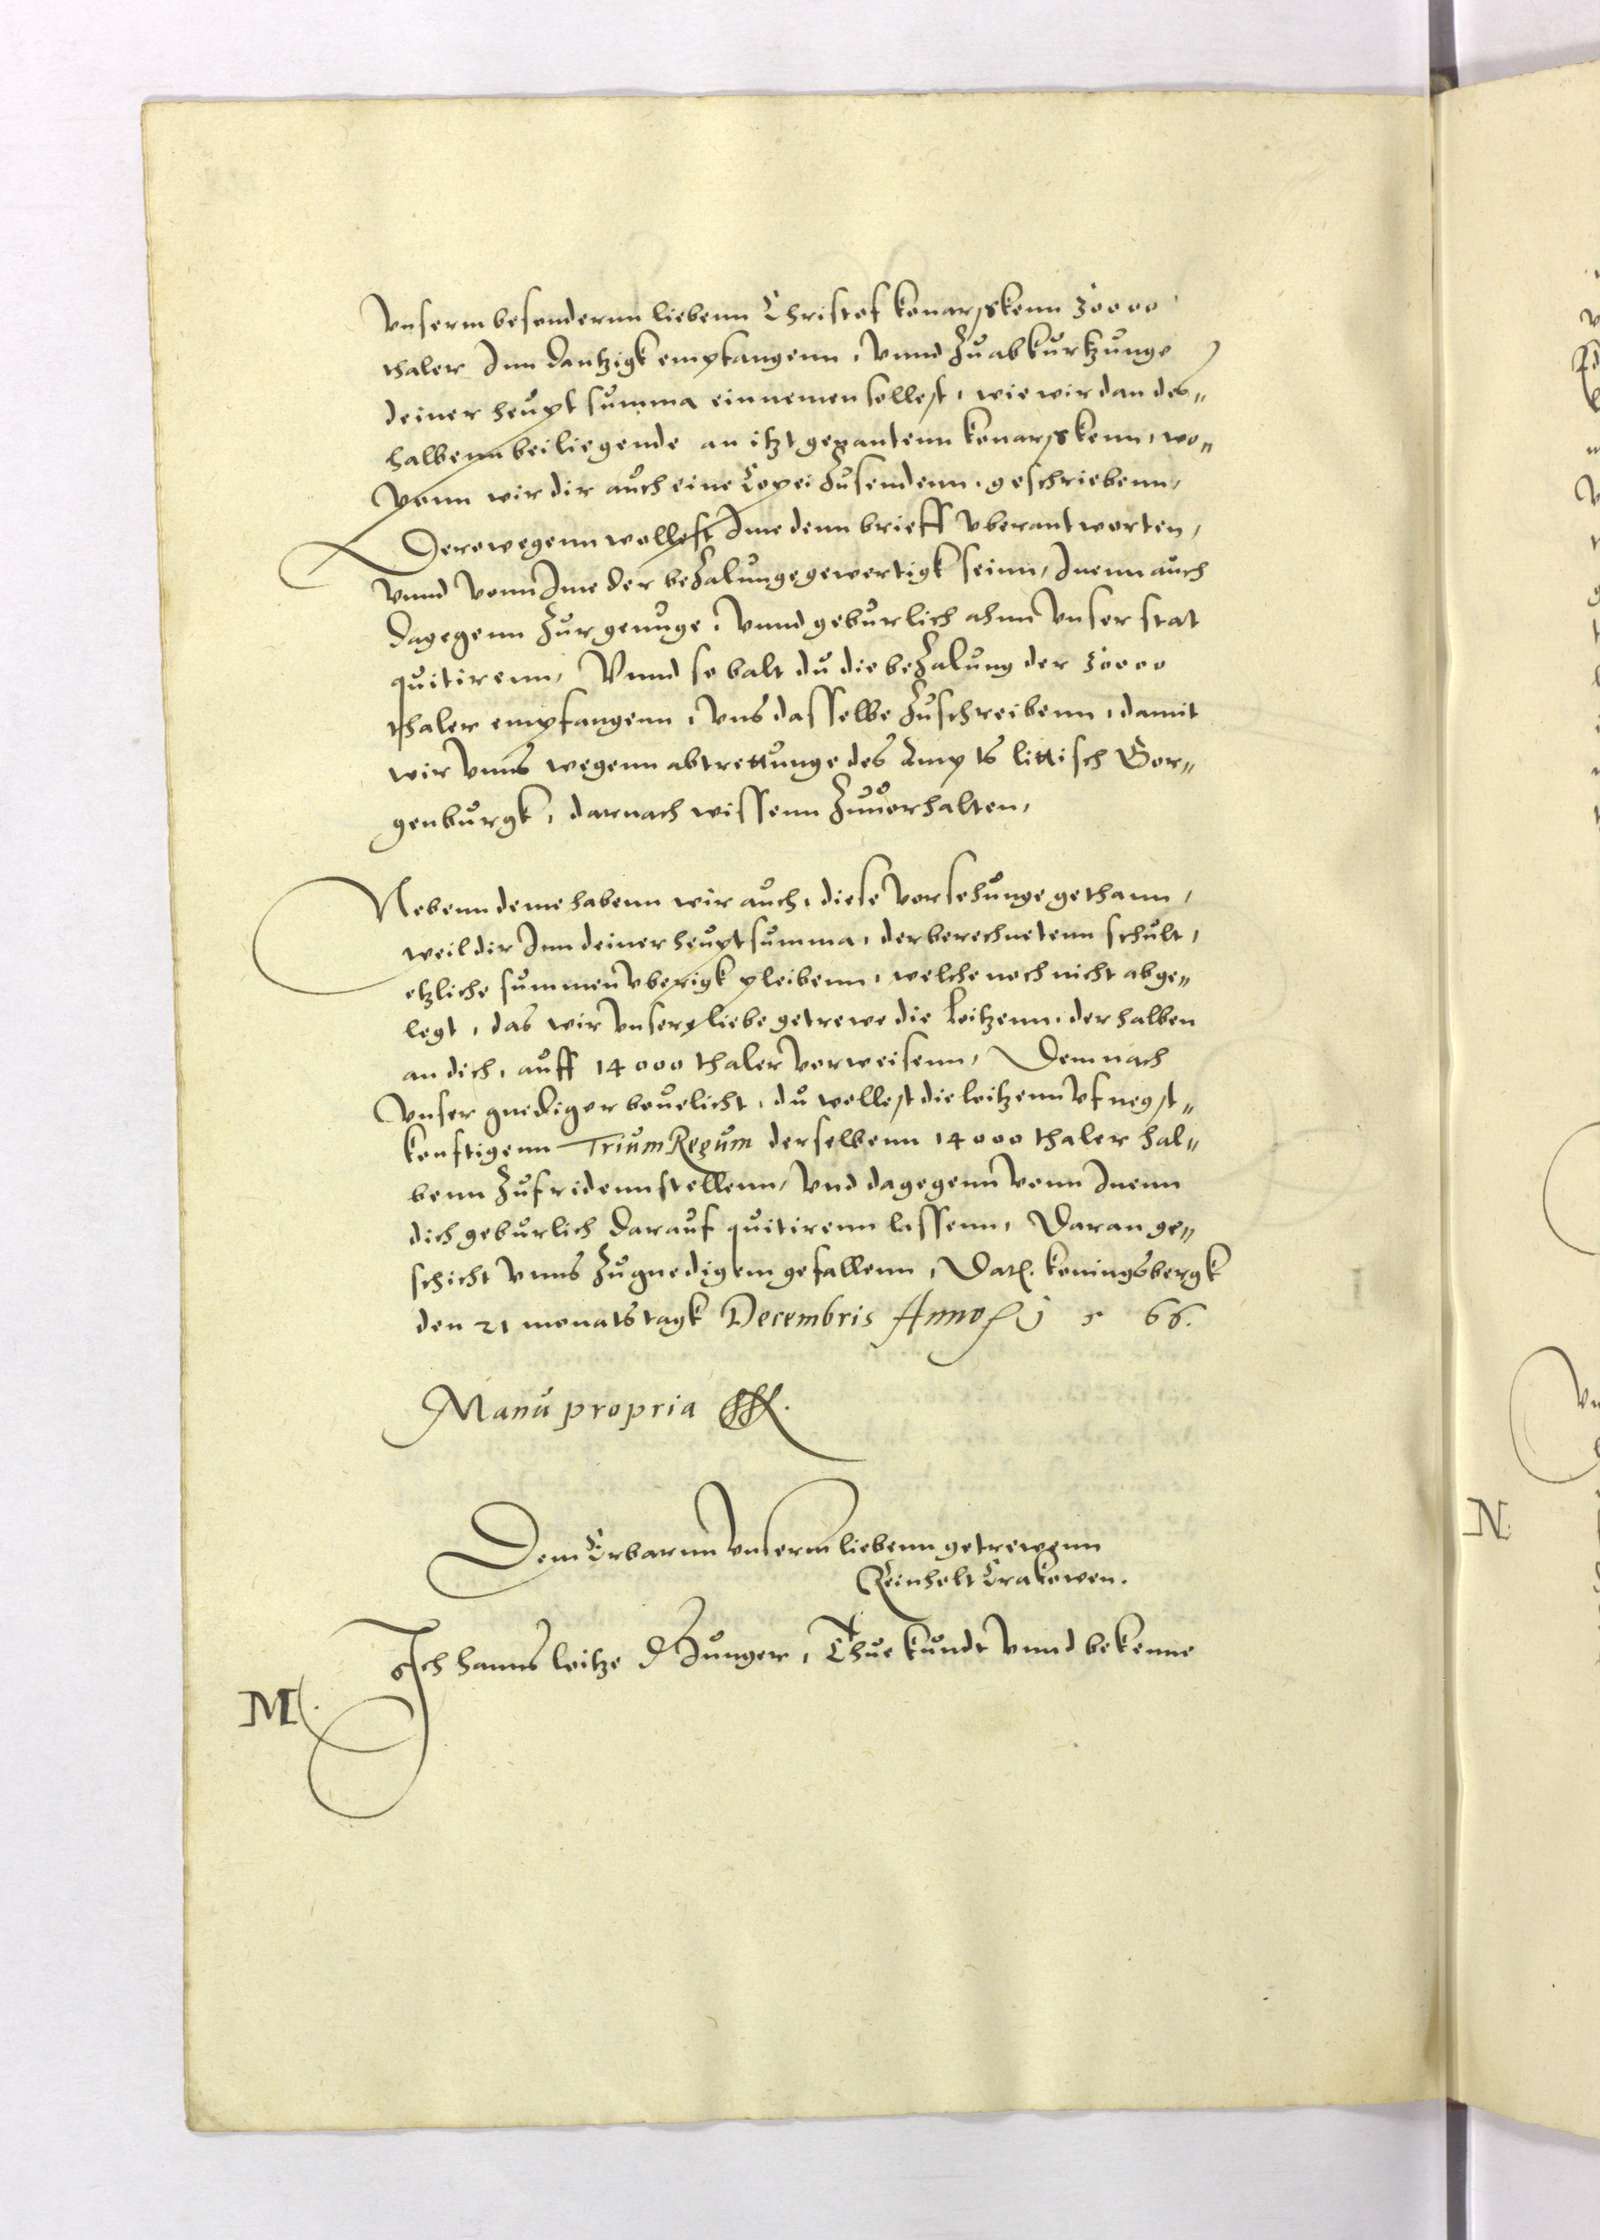 vnserm besondernn liebenn Christof Konarskenn 30000
thaler Inn Dantzigk empfangenn, vnnd zu abkurtzunge
deiner heupt summa einnemen sollest, wie wir dan des„
halbenn beiliegende an itzt genantenn Konarskenn, wo„
vonn wir dir auch eine Copei zusendenn, geschriebenn,
Derowegenn wollest Ime denn brieff vberantworten,
vnnd vonn Ime der bezalunge gewertigk seinn, Inenn auch
dagegenn zur genuge, vnnd geburlich ahnn vnser stat
quitirenn, Vnnd so balt du die bezalung der 30000
thaler empfangenn, vns dasselbe zuschreibenn, damit
wir vnns wegenn abtrettunge des Ampts littisch Gor„
genburgk, darnach wissenn zuuorhalten,
Nebenn deme habenn wir auch, diese vorsehunge gethann,
weil dir Inn deiner heuptsumma, der berechnetenn schult,
etzliche summen vberigk pleibenn, welche noch nicht abge„
legt, das wir vnsere liebe getrewe die Loitzenn, derhalben
an dich, auff 14000 thaler vorweisenn, Demnach
vnser gnediger beuelicht, du wollest die loitzenn vf negst„
konftigenn Trium Regum derselbenn 14000 thaler hal„
benn zufridenn stellenn, vnd dagegenn vonn Inenn
dich geburlich darauf quitirenn lassenn, Daran ge„
schicht vnns zu gnedigem gefallenn, Dat. Koningsbergk
den 21 monatstagk Decembris Anno 66.
Manu propria
Dem Erbarnn vnserm liebenn getrewenn
Reinholt Crakowen.
M.
Ich Hanns loitze d Junger, Thue kundt vnnd bekenne
N.